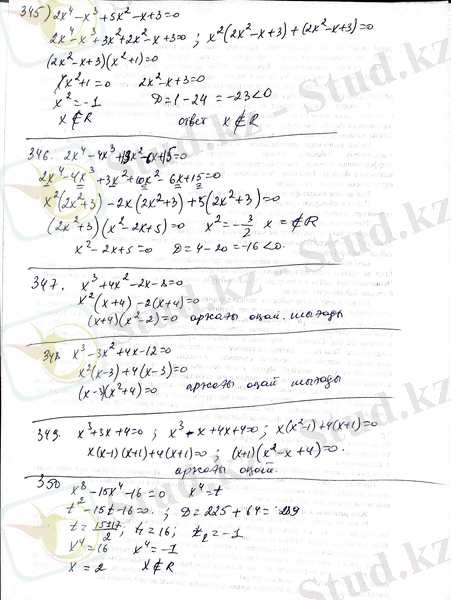 345) 2x⁴-x³+5x²-x+3=0
2x⁴-x³+3x²+2x²-x+3=0 ; x²(2x²-x+3)+(2x²-x+3)=0
(2x²-x+3)(x²+1)=0
x²+1=0 2x²-x+3=0
x²=-1 D=1-24=-23<0
x∉R ответ x∉R
346. 2x⁴-4x³+13x²-6x+15=0
2x⁴-4x³+3x²+10x²-6x+15=0
x²(2x²+3)-2x(2x²+3)+5(2x²+3)=0
(2x²+3)(x²-2x+5)=0 x²=-3/2 x=∉R
x²-2x+5=0 D=4-20=-16<0.
347. x³+4x²-2x-8=0
x²(x+4)-2(x+4)=0
(x+4)(x²-2)=0 аржағы оңай. шығады
348 x³-3x²+4x-12=0
x²(x-3)+4(x-3)=0
(x-3)(x²+4)=0 аржағы оңай шығады
349. x³+3x+4=0 ; x³-x+4x+4=0 ; x(x²-1)+4(x+1)=0
x(x-1)(x+1)+4(x+1)=0 ; (x+1)(x²-x+4)=0.
аржағы оңай.
350 x⁸-15x⁴-16=0 x⁴=t
t²-15t-16=0. ; D=225+64=289
t=15±17/2 ; t₁=16; t₂=-1
x⁴=16 x⁴=-1
x=2 x∉R
Stud.kz - Stud.kz
Stud.kz - Stud.kz
Stud.kz - Stud.kz
Stud.kz